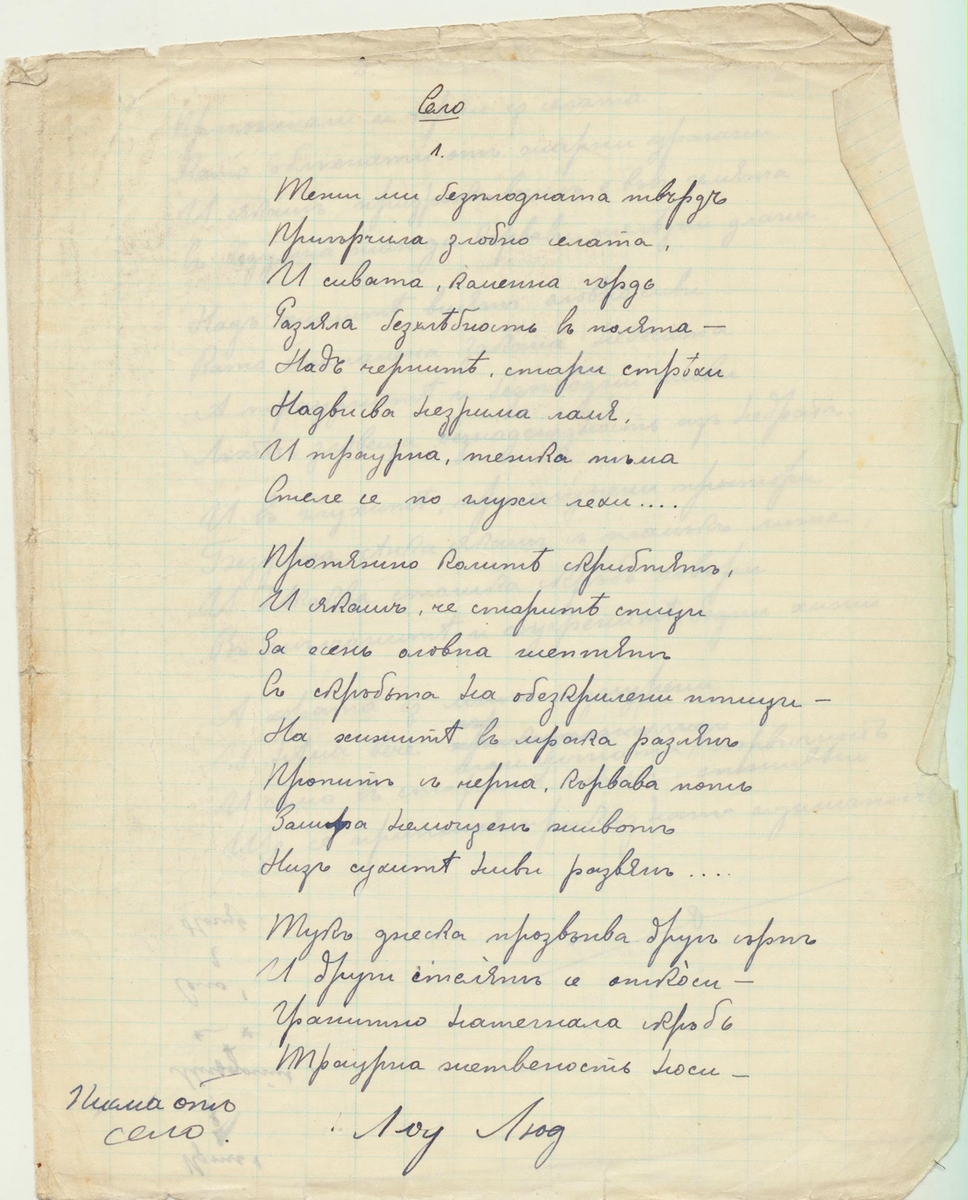 Село
1.
Тежи ми безплодната твърдъ
Приперчила злобно селата,
И сивата, каменна гърдь
Разляла безхлѣбность въ полята —
Надъ чернитѣ, стари стрѣхи
Надвисва незрима ламя,
И траурна, тежка тъма
Стеле се по глухи лехи....
Протяжно колитѣ скрибтятъ,
И якашъ, че старитѣ спици
За есень оловна шептятъ
Съ скръбьта на обезкрилени птици —
На хижитѣ въ мрака разлятъ
Пропитъ съ черна, кървава потъ
Замира немощенъ животъ
Низъ сухитѣ ниви развятъ....
Тукъ днеска прозвънва другъ сърпъ
И други стелятъ се откоси —
Гранитно натегнала скръбь
Траурна жетвеность носи —
Писма отъ
село.
Лоу Люд